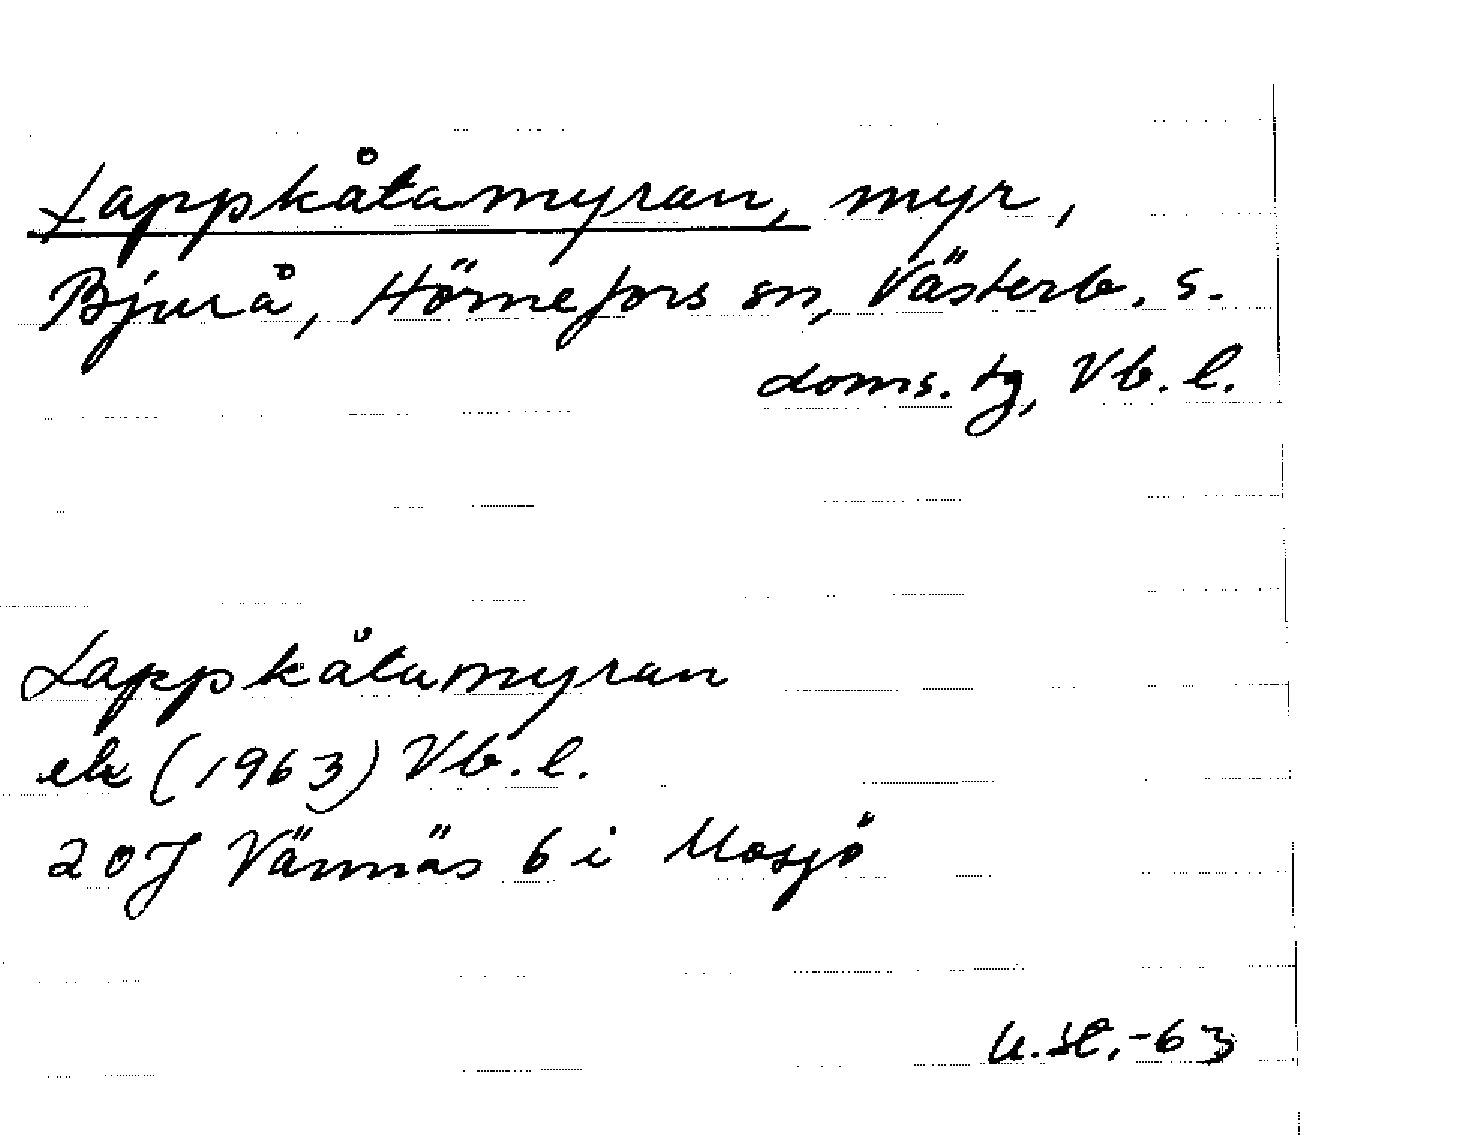 Lappkåtamyran, myr,
Bjurå, Hörnefors sn, Västerb. s.
doms. tg, Vb. l.
Lappkåtamyran
ek (1963) Vb. l.
20J Vännäs 6 i Mosjö
U.St.-63